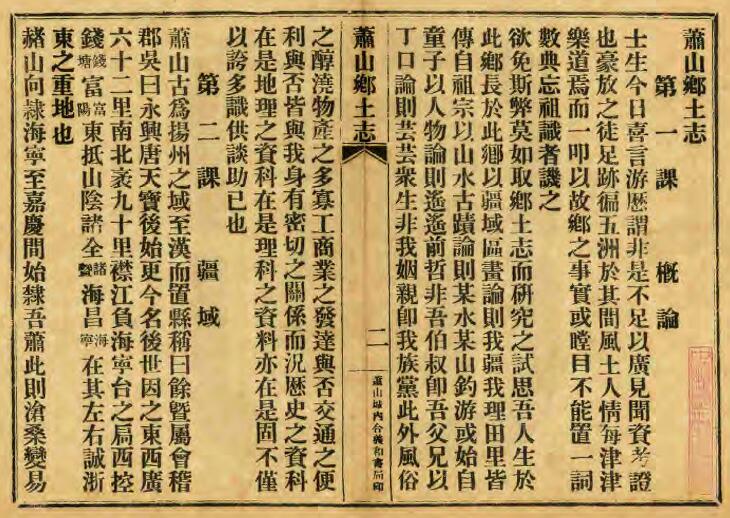 蕭山鄉土志
第一課　概論
士生今日喜言游歷謂非是不足以廣見聞資考證
也豪放之徒足跡徧五洲於其間風土人情每津津
樂道焉而一叩以故鄉之事實或瞠目不能置一詞
數典忘祖識者譏之
欲免斯弊莫如取鄉土志而硏究之試思吾人生於
此鄉長於此鄕以疆域區畫論則我疆我理田里皆
傳自祖宗以山水古蹟論則某水某山釣游或始自
童子以人物論則遙遙前哲非吾伯叔卽吾父兄以
丁口論則芸芸衆生非我姻親卽我族黨此外風俗
蕭山鄉土志
二
蕭山城內合義和書局印
之醇澆物產之多寡工商業之發達與否交通之便
利與否皆與我身有密切之關係而況歷史之資料
在是地理之資料在是理科之資料亦在是固不僅
以誇多識供談助已也
第二課　疆域
蕭山古爲揚州之域至漢而置縣稱曰餘曁屬會稽
郡吳曰永興唐天寶後始更今名後世因之東西廣
六十二里南北袤九十里襟江負海寧台之扃西控
錢錢塘富富陽東抵山陰諸全諸曁海昌海寧在其左右誠浙
東之重地也
赭山向隸海寧至嘉慶間始隸吾蕭此則滄桑變易